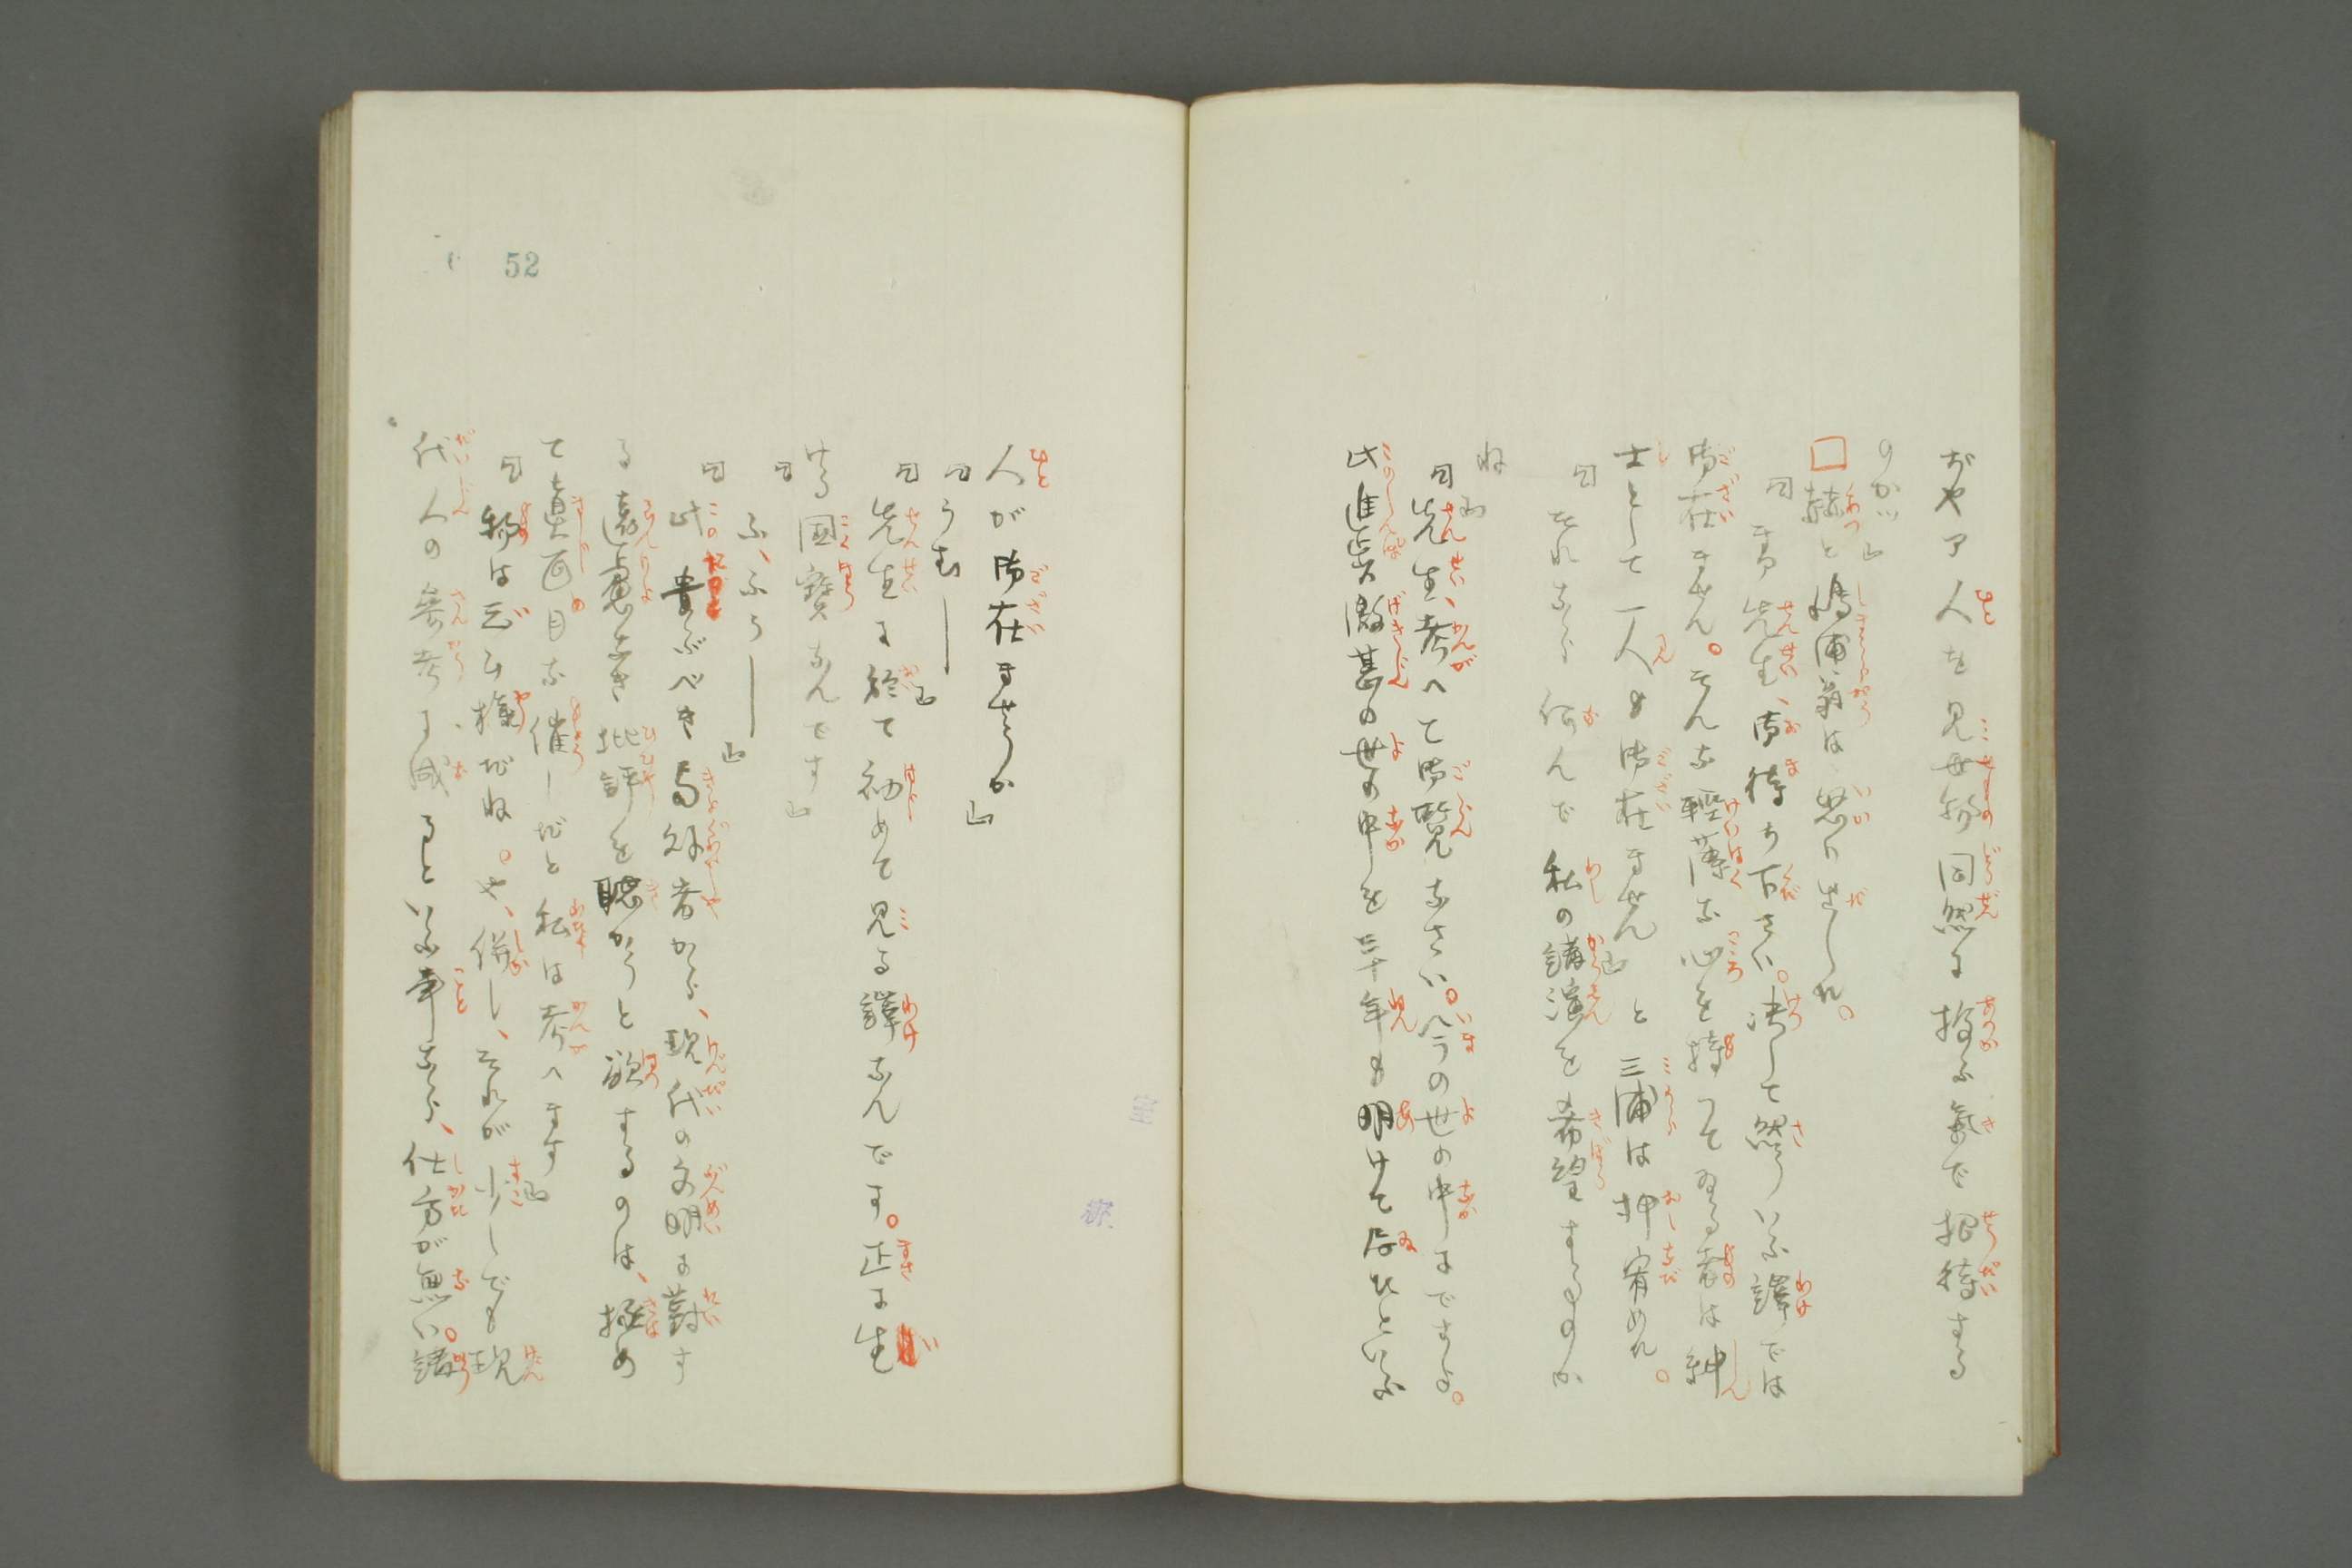 ぢやア人を見世物同然に扱ふ氣で招待する
のかい」
□赫と嶋浦翁は怒り出しれ。
「まア先生、御待ち下さい。决して然ういふ譯では
御在ません。そんな輕薄な心を持つて居る者は紳
士として一人も御在ません」と三浦は押宥めれ。
「それなら何んで私の講演を希望するのか
ね」
「先生、考へて御覽なさい。今の世の中はですよ。
此進歩激甚の世の中を三十年も明けて居ひといふ
人が御在ませうか」
「うむ――」
「先生に於て初めて見る譯なんです。正に生
ける國寶なんです」
「ふ、ふう――」
「此貴ぶべき局外者から、現代の文明に對す
る遠慮なき批評を聽かうと欲するのは、極め
て眞面目な催しだと私は考へます」
「物は云ひ樣だね。や、併し、それが少しでも現
代人の參考に成るといふ事なら、仕方が無い。講
52